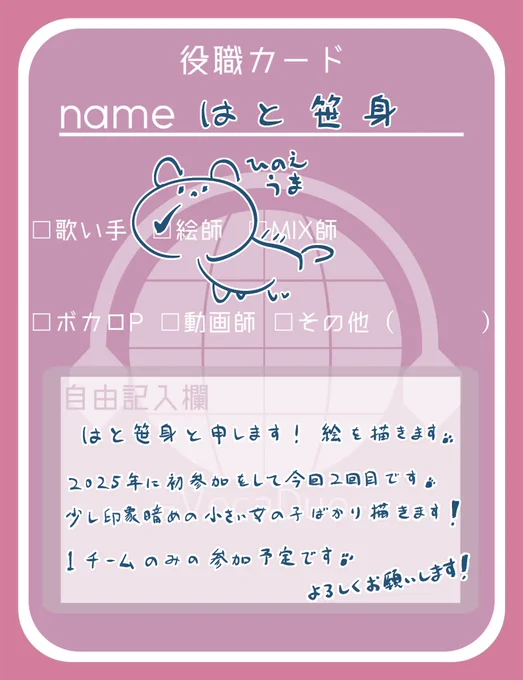 役職カード
name はと笹身
ひのえ
うま
□歌い手 ☑絵師 □MIX師
□ボカロP □動画師 □その他( )
自由記入欄
はと笹身と申します! 絵を描きます
2025年に初参加をして今回2回目です
少し印象暗めの小さい女の子ばかり描きます!
1チームのみの参加予定です
よろしくお願いします!
VocaDuo